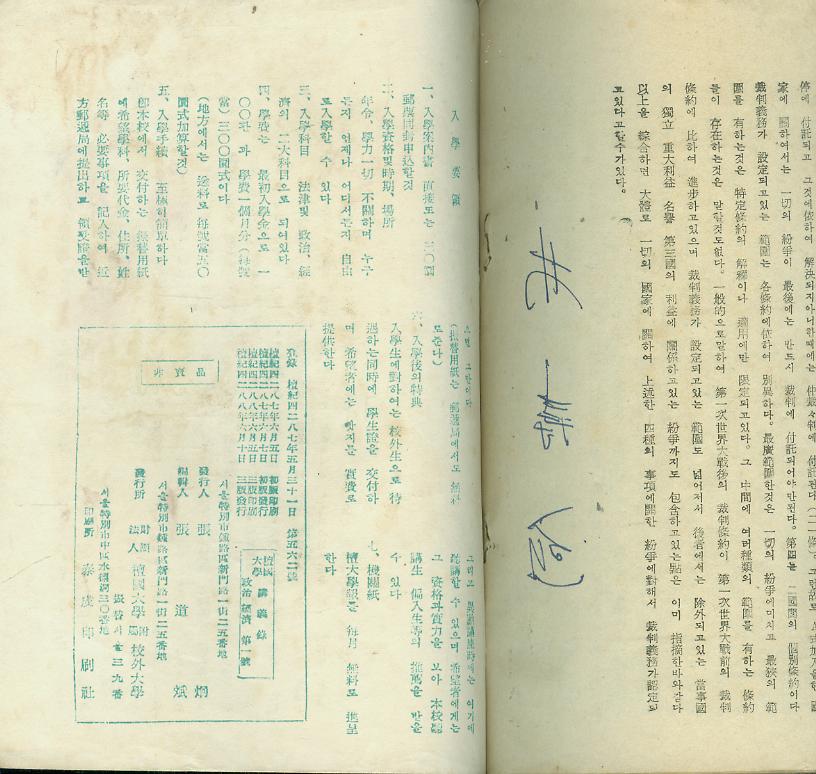 停에 付託되고 그것에依하여 解決되지아니한때에는 仲裁裁判에 付託된다
家에 關하여서는 一切의 紛爭이 最後에는 반드시 裁判에 付託되어야만된다。第四은 二國間의 個別條約이다
裁判義務가 設定되고있는 範圍는 各條約에依하여 別異하다。最廣範圍한것은 一切의 紛爭에미치고 最狹의 範
圍를 有하는것은 特定條約의 解釋이나 適用에만 限定되고있다。그 中間에 여러種類의 範圍를 有하는 條約
들이 存在하는것은 말할것도없다。一般的으로말하여 第一次世界大戰後의 裁判條約이 第一次世界大戰前의 裁判
條約에 比하여 進步하고있으며 裁判義務가 設定되고있는 範圍도 넓어져서 後者에서는 除外되고있는 當事國
의 獨立 重大利益 名譽 第三國의 利益에 關係하고있는 紛爭까지도 包含하고있는點은 이미 指摘한바와같다
以上을 綜合하면 大體로 一切의 國家에 關하여 上述한 四種의 事項에關한 紛爭에對해서 裁判義務가認定되
고있다고할수가있다。
入學要領
一、入學案內書 直接또는 三〇圜
郵票同封申込할것
二、入學資格및時期、場所
年令、學力一切 不關하며 누구
든지 언제나 어디서든지 自由
로入學할 수 있다
三、入學科目 法律및 政治、經
濟의 二大科目으로 되어있다
四、學費는 最初入學金으로 一
〇〇圜과 學費一個月分(每號
當)三〇〇圜式이다
(地方에서는 送料로每號當五〇
圜式加算할것)
五、入學手續 至極히簡單하다
卽本校에서 交付하는 振替用紙
에希望學科、所要代金、住所、姓
名等 必要事項을 記入하여 近
方郵遞局에提出하고 領受證을받
으면 그만이다
(振替用紙는 郵遞局에서도 無料
로준다)
六、入學後의特典
入學生에對하여는 校外生으로 待
遇하는同時에 學生證을 交付하
며 希望者에는 뺏지를 實費로
提供한다
聽講할수 있으며 希望者에게는
그 資格과實力을 보아 本校聽
講生 偏入生等의 推薦을 받을
수 있다
七、機關紙
檀大學報를 每月 無料로 進呈
한다
登錄 檀紀四二八七年五月三十一日 第五六二號
檀紀四二八七年六月五日 初版印刷
檀紀四二八七年六月七日 初版發行
檀紀四二八八年六月五日 三版印刷
檀紀四二八八年六月十日 三版發行
檀國大學 講義錄
政治 經濟 第一號
非賣品
서울特別市鍾路區新門路一街二五番地
發行人 張 炯
編輯人 張 道 斌
서울特別市鍾路區新門路一街二五番地
發行所 財團法人 檀國大學附屬 校外大學
振替서울三九番
서울特別市中區水標洞三〇番地
印刷所 泰成印刷社